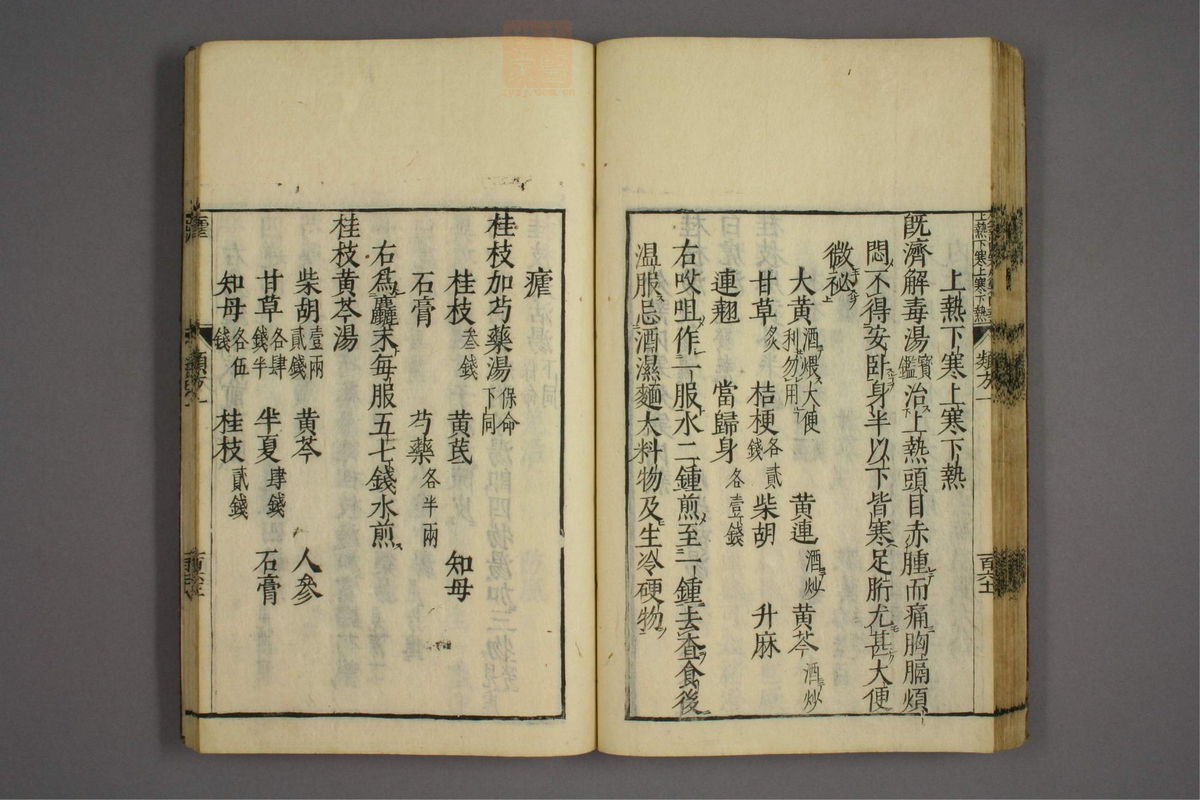 上熱下寒上寒下熱
上熱下寒上寒下熱
既濟解毒湯寶鑑治上熱頭目赤腫而痛胸膈煩
悶不得安臥身半以下皆寒足䯒尤甚大便
微祕
大黃酒煨大便利勿用 黃連酒炒 黃芩酒炒
甘草炙 桔梗各貳錢 柴胡 升麻
連翹 當歸身各壹錢
右㕮咀作一服水二鍾煎至一鍾去査食後
温服忌酒濕麵大料物及生冷硬物
類方一
瘧
桂枝加芍藥湯保命下同
桂枝叁錢 黃芪 知母
石膏 芍藥各半兩
右爲麤末每服五七錢水煎
桂枝黃芩湯
柴胡壹兩貳錢 黃芩 人參
甘草各肆錢半 半夏肆錢 石膏
知母各伍錢 桂枝貳錢
瘧
類方一